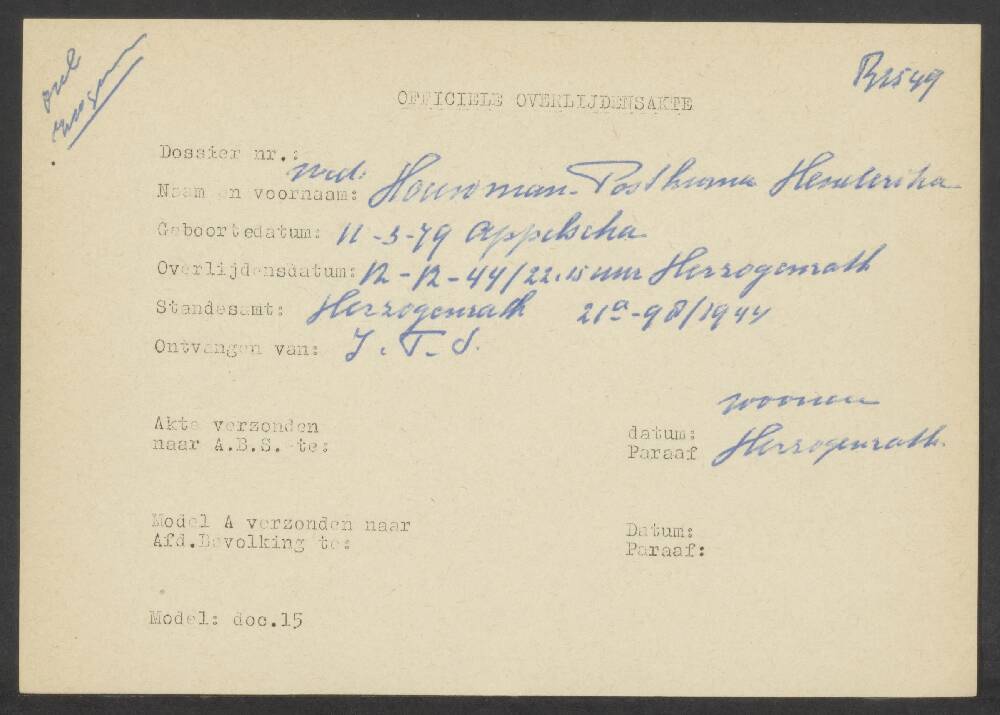 OFFICIELE OVERLIJDENSAKTE
Dossier nr.:
wed: Houwman-Posthuma Henderika
Naam en voornaam:
Geboortedatum: 11-3-79 Appelscha
Overlijdensdatum: 12-12-44/22.15 uur Herzogenrath
Standesamt: Herzogenrath 21a-98/1944
Ontvangen van: I.T.S.
woonen
Akte verzonden
naar A.B.S. te:
datum:
Paraaf Herzogenrath.
Model A verzonden naar
Afd.Bevolking te:
Datum:
Paraaf:
Model: doc.15